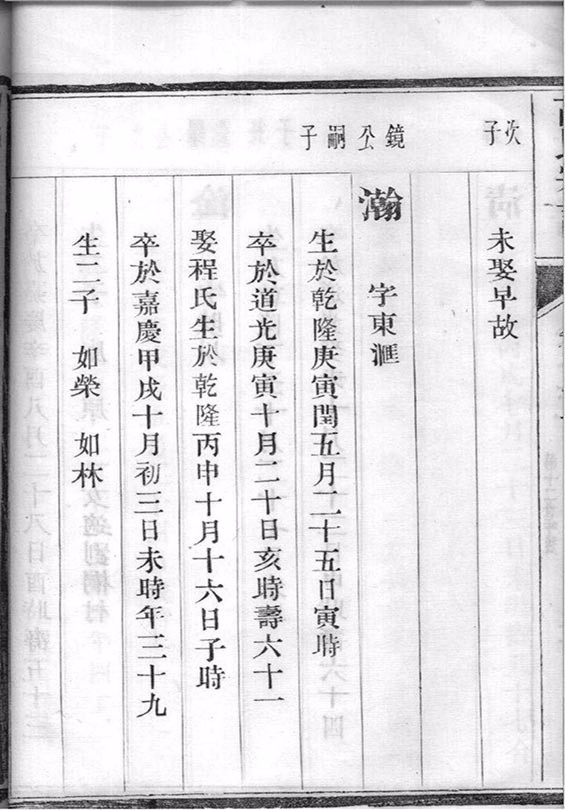 次子
未娶早故
鏡公嗣子
瀚 字東滙
生於乾隆庚寅閏五月二十五日寅時
卒於道光庚寅十月二十日亥時壽六十一
娶程氏生於乾隆丙申十月十六日子時
卒於嘉慶甲戌十月初三日未時年三十九
生二子 如榮 如林